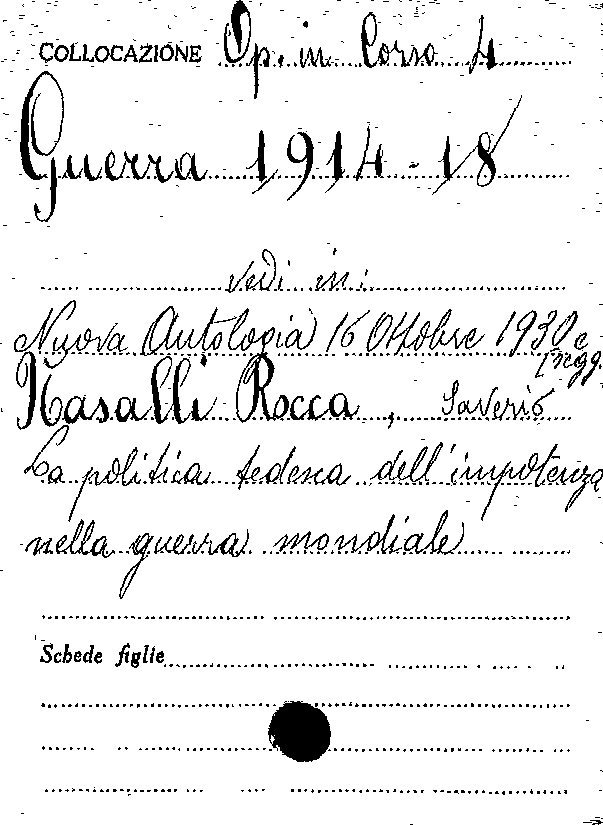 COLLOCAZIONE Op. in Corso 4
Guerra 1914-18
vedi in:
Nuova Antologia 16 Ottobre 1930 e
segg.
Nasalli Rocca, Saverio
La politica tedesca dell'impotenza
nella guerra mondiale
Schede figlie